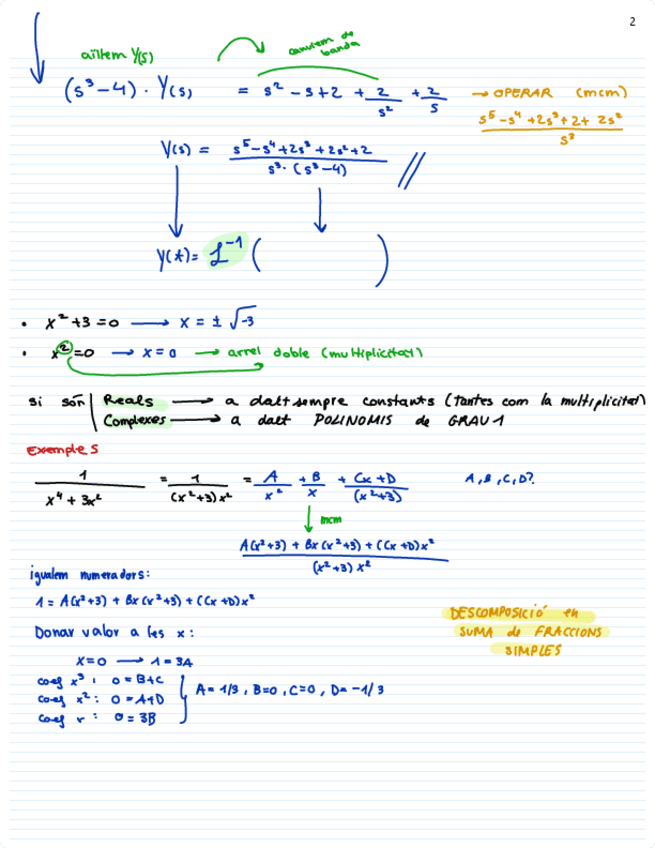 2
aïllem Y(s)
canviem de banda
(s³-4) · Y(s) = s² - s + 2 + 2/s² + 2/s → OPERAR (mcm)
s⁵-s⁴+2s³+2+2s² / s³
Y(s) = s⁵-s⁴+2s³+2s²+2 / s³·(s³-4) //
y(t) = L⁻¹ ( )
• x²+3=0 → x = ± √-3
• x²=0 → x=0 → arrel doble (multiplicitat)
si són | Reals → a dalt sempre constants (tantes com la multiplicitat)
Complexes → a dalt POLINOMIS de GRAU 1
Exemples
1 / x⁴+3x² = 1 / (x²+3)x² = A/x² + B/x + Cx+D / (x²+3) A,B,C,D?
mcm
A(x²+3) + Bx(x²+3) + (Cx+D)x² / (x²+3)x²
igualem numeradors:
1 = A(x²+3) + Bx(x²+3) + (Cx+D)x²
Donar valor a les x:
DESCOMPOSICIÓ en
SUMA de FRACCIONS
SIMPLES
x=0 → 1=3A
coef x³: 0=B+C
coef x²: 0=A+D
coef x: 0=3B
A=1/3, B=0, C=0, D=-1/3